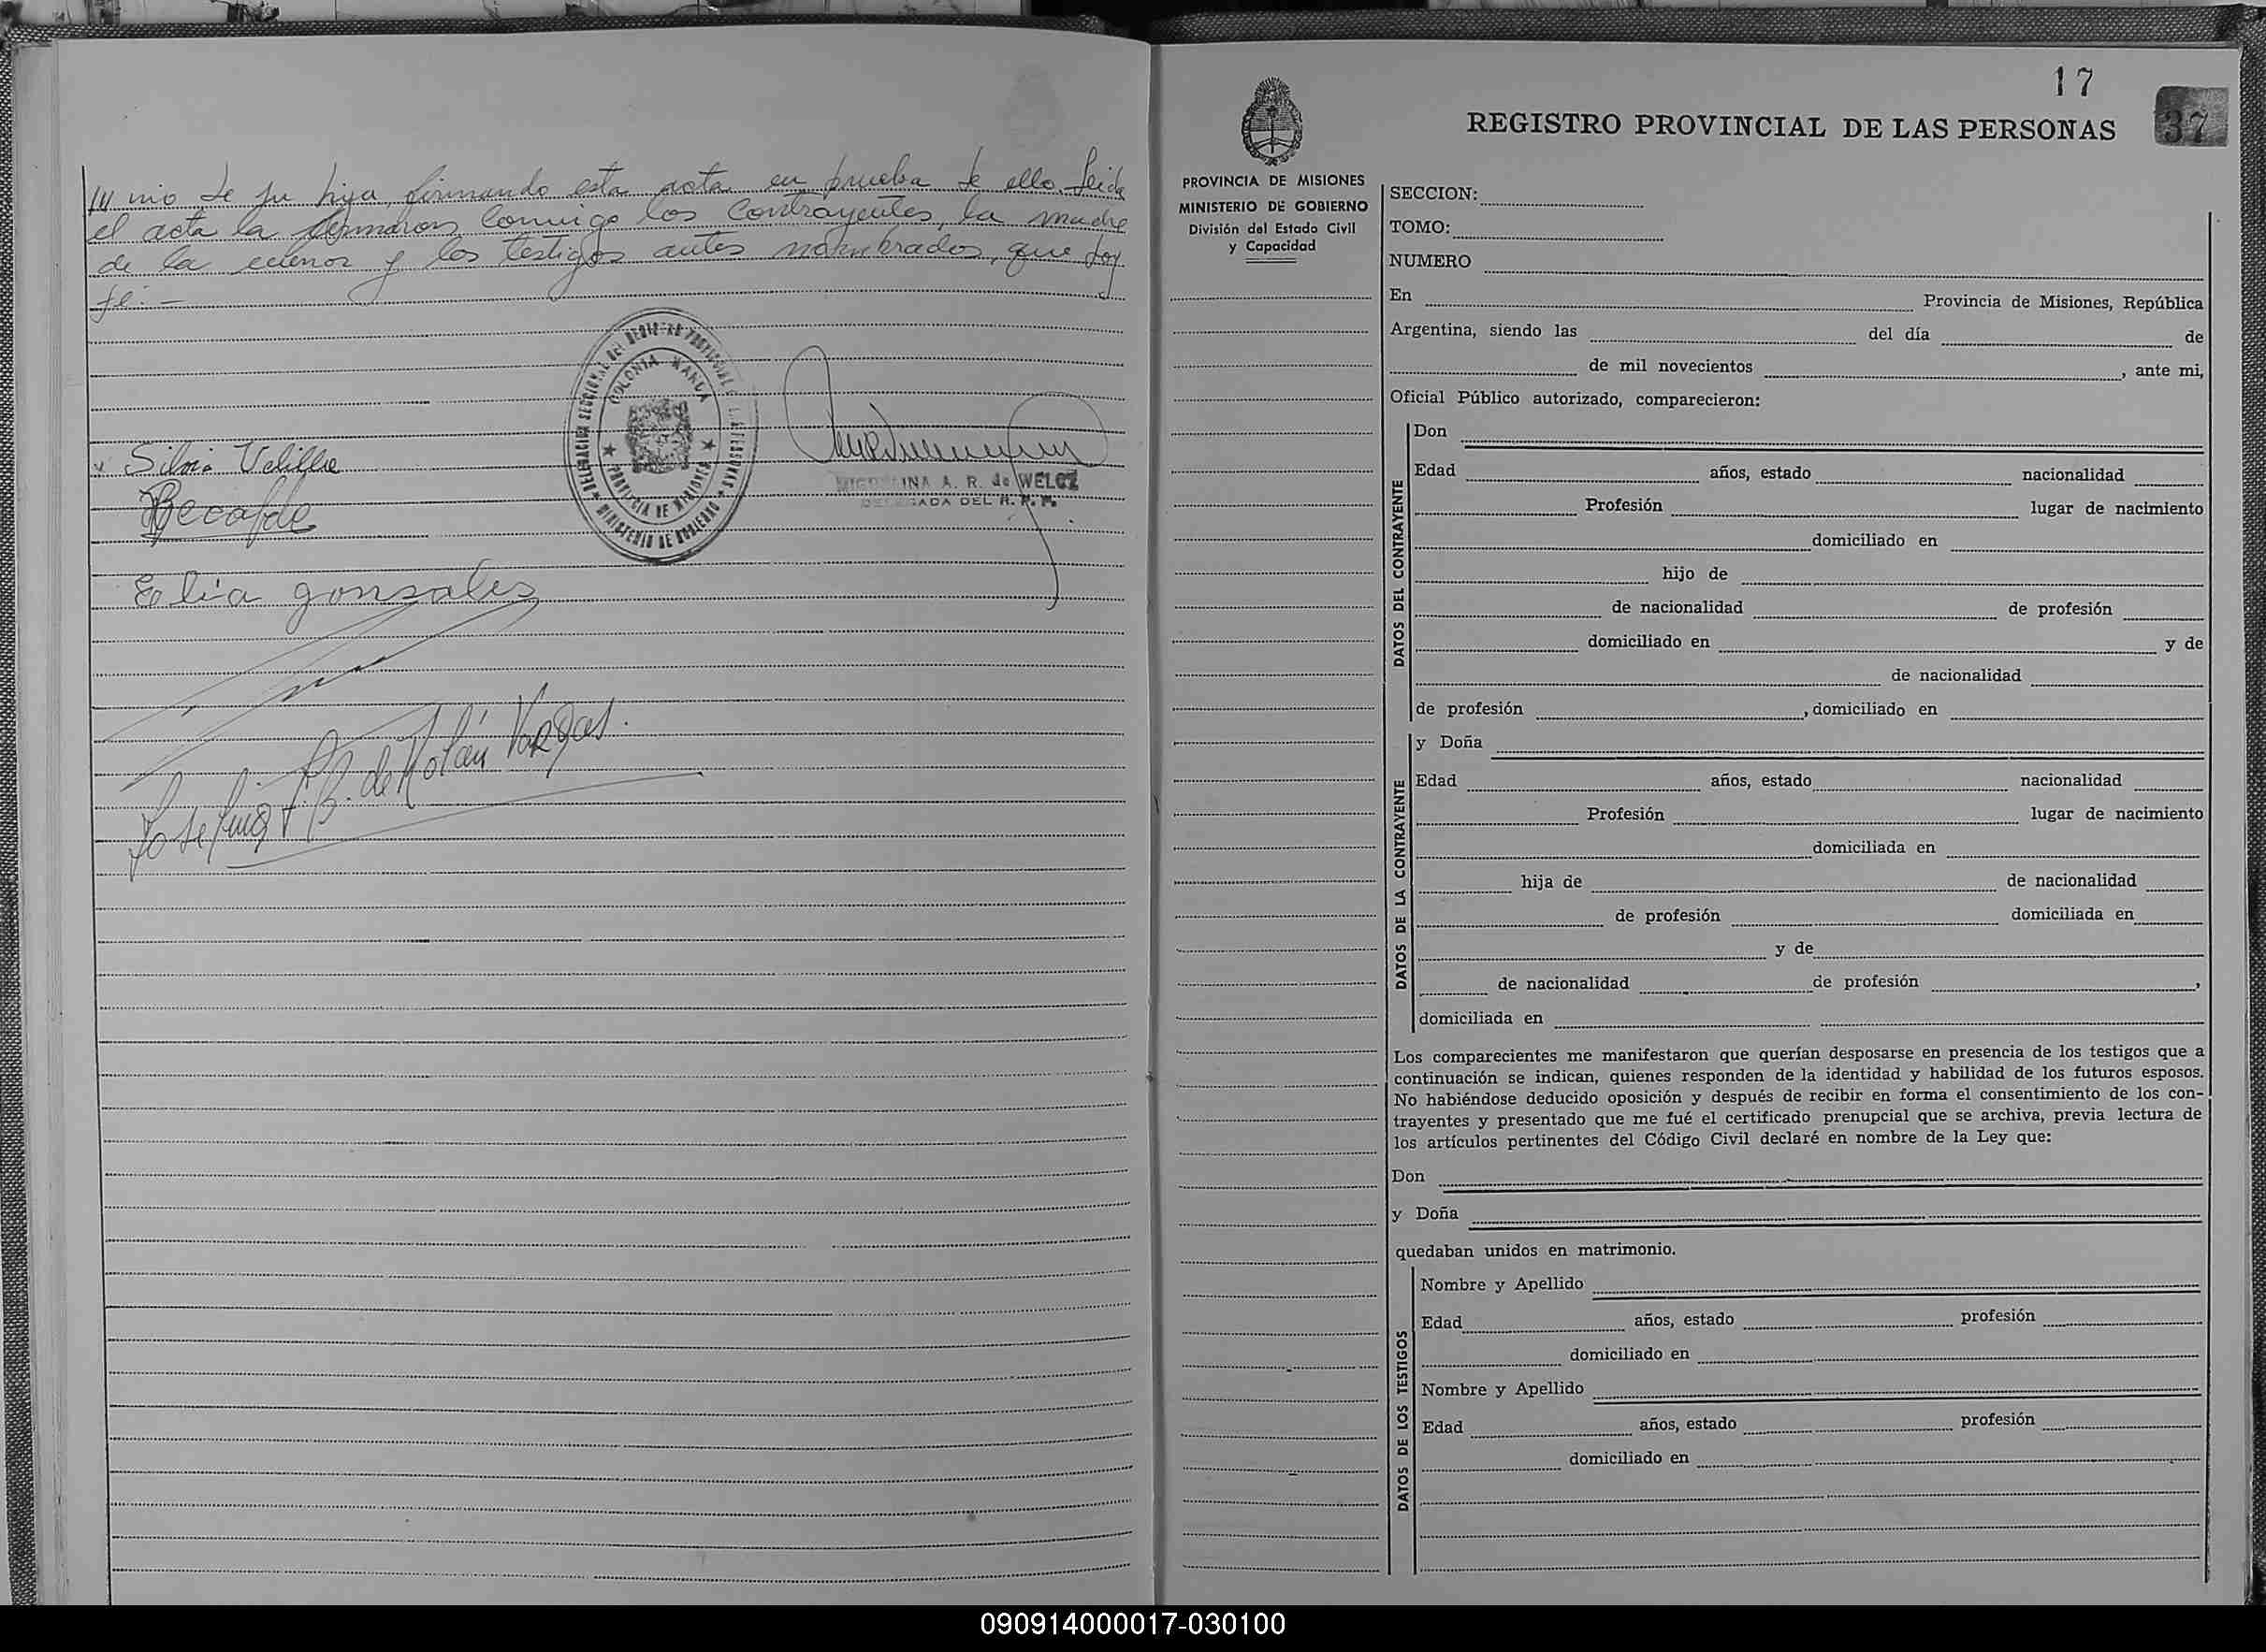 nio de su hija, firmando esta acta en prueba de ello. Leida
el acta la firmaron conmigo los contrayentes, la madre
de la menor y los testigos antes nombrados, que doy
fé. -
DELEGACION SECCIONAL DEL REGISTRO PROVINCIAL DE LAS PERSONAS
MINISTERIO DE GOBIERNO
COLONIA WANDA
PROVINCIA DE MISIONES
A. R. de WELCZ
DELEGADA DEL R. P. P.
Silvia Velilla
Recalde
Elia gonzales
Josefina F. B. de Rolán Vargas.
17
37
REGISTRO PROVINCIAL DE LAS PERSONAS
PROVINCIA DE MISIONES
MINISTERIO DE GOBIERNO
División del Estado Civil
y Capacidad
SECCION:
TOMO:
NUMERO
En Provincia de Misiones, República
Argentina, siendo las del día de
de mil novecientos , ante mi,
Oficial Público autorizado, comparecieron:
DATOS DEL CONTRAYENTE
Don
Edad años, estado nacionalidad
Profesión lugar de nacimiento
domiciliado en
hijo de
de nacionalidad de profesión
domiciliado en y de
de nacionalidad
de profesión , domiciliado en
DATOS DE LA CONTRAYENTE
y Doña
Edad años, estado nacionalidad
Profesión lugar de nacimiento
domiciliada en
hija de de nacionalidad
de profesión domiciliada en
y de
de nacionalidad de profesión ,
domiciliada en
Los comparecientes me manifestaron que querían desposarse en presencia de los testigos que a
continuación se indican, quienes responden de la identidad y habilidad de los futuros esposos.
No habiéndose deducido oposición y después de recibir en forma el consentimiento de los con-
trayentes y presentado que me fué el certificado prenupcial que se archiva, previa lectura de
los artículos pertinentes del Código Civil declaré en nombre de la Ley que:
Don
y Doña
quedaban unidos en matrimonio.
DATOS DE LOS TESTIGOS
Nombre y Apellido
Edad años, estado profesión
domiciliado en
Nombre y Apellido
Edad años, estado profesión
domiciliado en
090914000017-030100